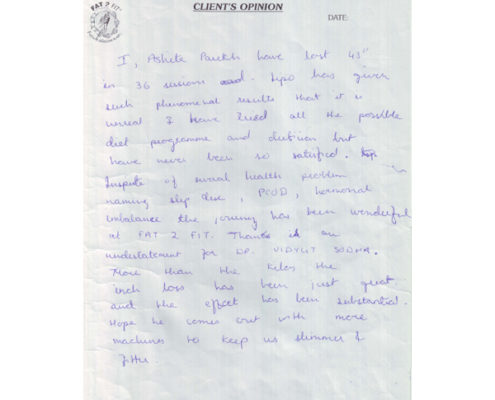 FAT 2 FIT
CLIENT'S OPINION
DATE:
I, Ashita Parekh have lost 43"
in 36 sessions. Lipo has given
such phenomenal results that it is
unreal I have tried all the possible
diet programme and dietician but
have never been so satisfied.
Inspite of several health problem
naming slip disc, PCOD, hormonal
imbalance the journey has been wonderful
at FAT 2 FIT. Thanks is an
understatement for DR.
More than the kilos the
inch loss has been just great
and the effect has been substantial.
Hope he comes out with more
machines to keep us slimmer &
fitter.